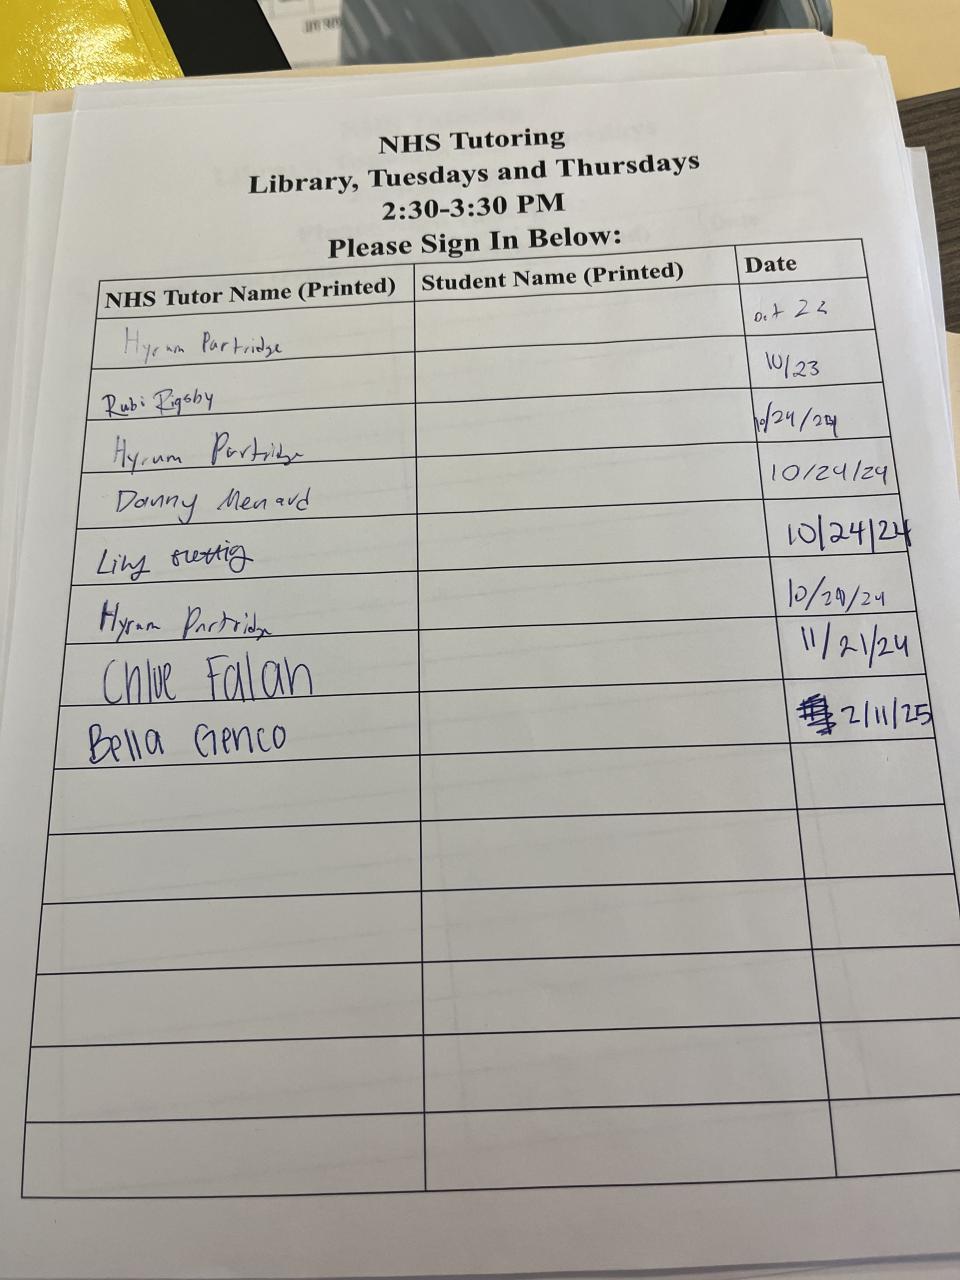 NHS Tutoring
Library, Tuesdays and Thursdays
2:30-3:30 PM
Please Sign In Below:
NHS Tutor Name (Printed) Student Name (Printed) Date
Hyrum Partridge Oct 23
Rubi Rigsby 10/23
Hyrum Partridge 10/24/24
Danny Menard 10/24/24
10/24/24
Hyrum Partridge 10/29/24
Chloe Falah 11/21/24
Bella Genco 2/11/25